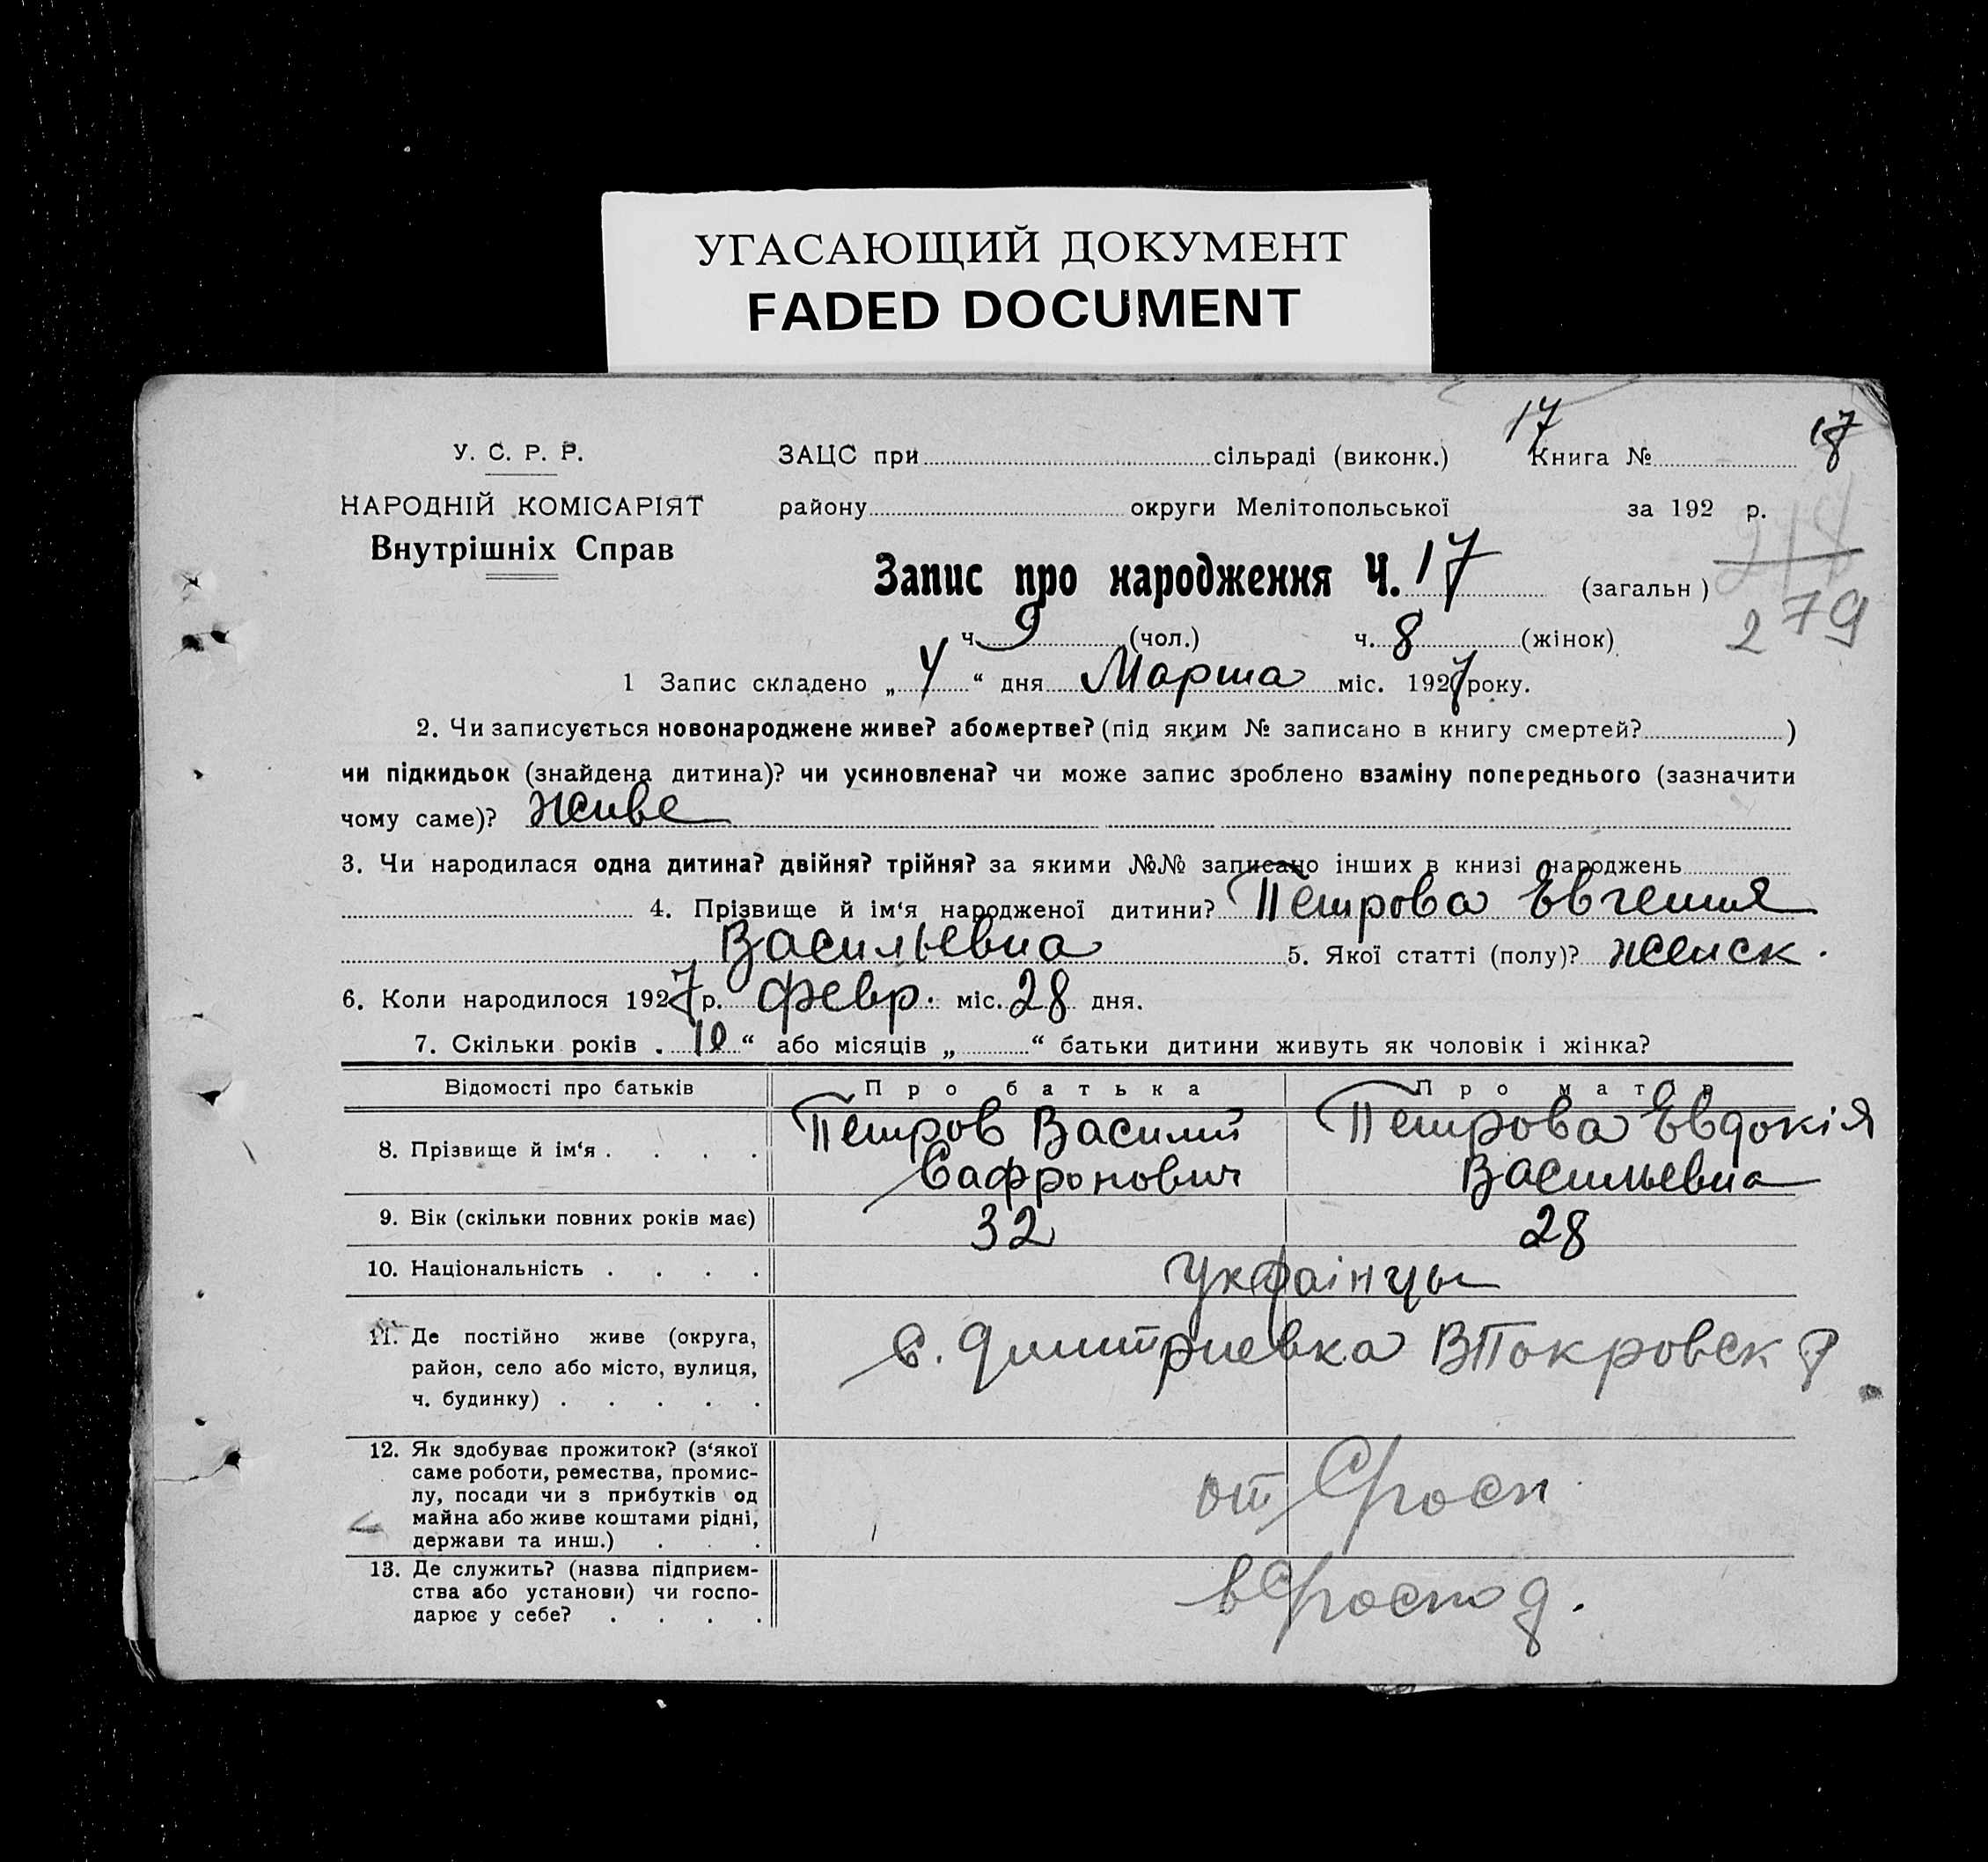 УГАСАЮЩИЙ ДОКУМЕНТ
FADED DOCUMENT
17
17
У. С. Р. Р.
ЗАЦС при сільраді (виконк.) Книга №
НАРОДНІЙ КОМІСАРІЯТ
району округи Мелітопольської за 192 р.
Внутрішніх Справ
218
Запис про народження Ч. 17 (загальн)
279
ч. 9 (чол.) ч. 8 (жінок)
1 Запис складено „ 4 “ дня Марта міс. 1927 року.
2. Чи записується новонароджене живе? або мертве? (під яким № записано в книгу смертей? )
чи підкидьок (знайдена дитина)? чи усиновлена? чи може запис зроблено взаміну попереднього (зазначити
чому саме)? живе
3. Чи народилася одна дитина? двійня? трійня? за якими №№ записано інших в книзі народжень
4. Прізвище й ім‘я народженої дитини? Петрова Евгения
Васильевна 5. Якої статті (полу)? женск.
6. Коли народилося 1927 р. февр. міс. 28 дня.
7. Скільки років „ 10 “ або місяців „ “ батьки дитини живуть як чоловік і жінка?
Відомості про батьків Про батька Про матір
8. Прізвище й ім‘я . . . . Петров Василий Петрова Евдокія
Сафронович Васильевна
9. Вік (скільки повних років має) 32 28
10. Національність . . . . Українцы
11. Де постійно живе (округа, с. Дмитриевка ВПокровск р
район, село або місто, вулиця,
ч. будинку) . . . . .
12. Як здобуває прожиток? (з‘якої
саме роботи, ремества, промис-
лу, посади чи з прибутків од от
майна або живе коштами рідні,
держави та инш.) . . .
13. Де служить? (назва підприєм-
ства або установи) чи госпо-
дарює у себе? . . . .